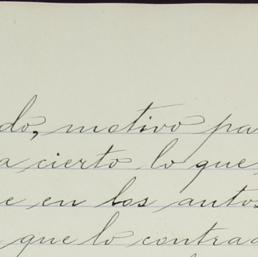 do, motivo pa
a cierto lo que
e en los autos
que lo contrad